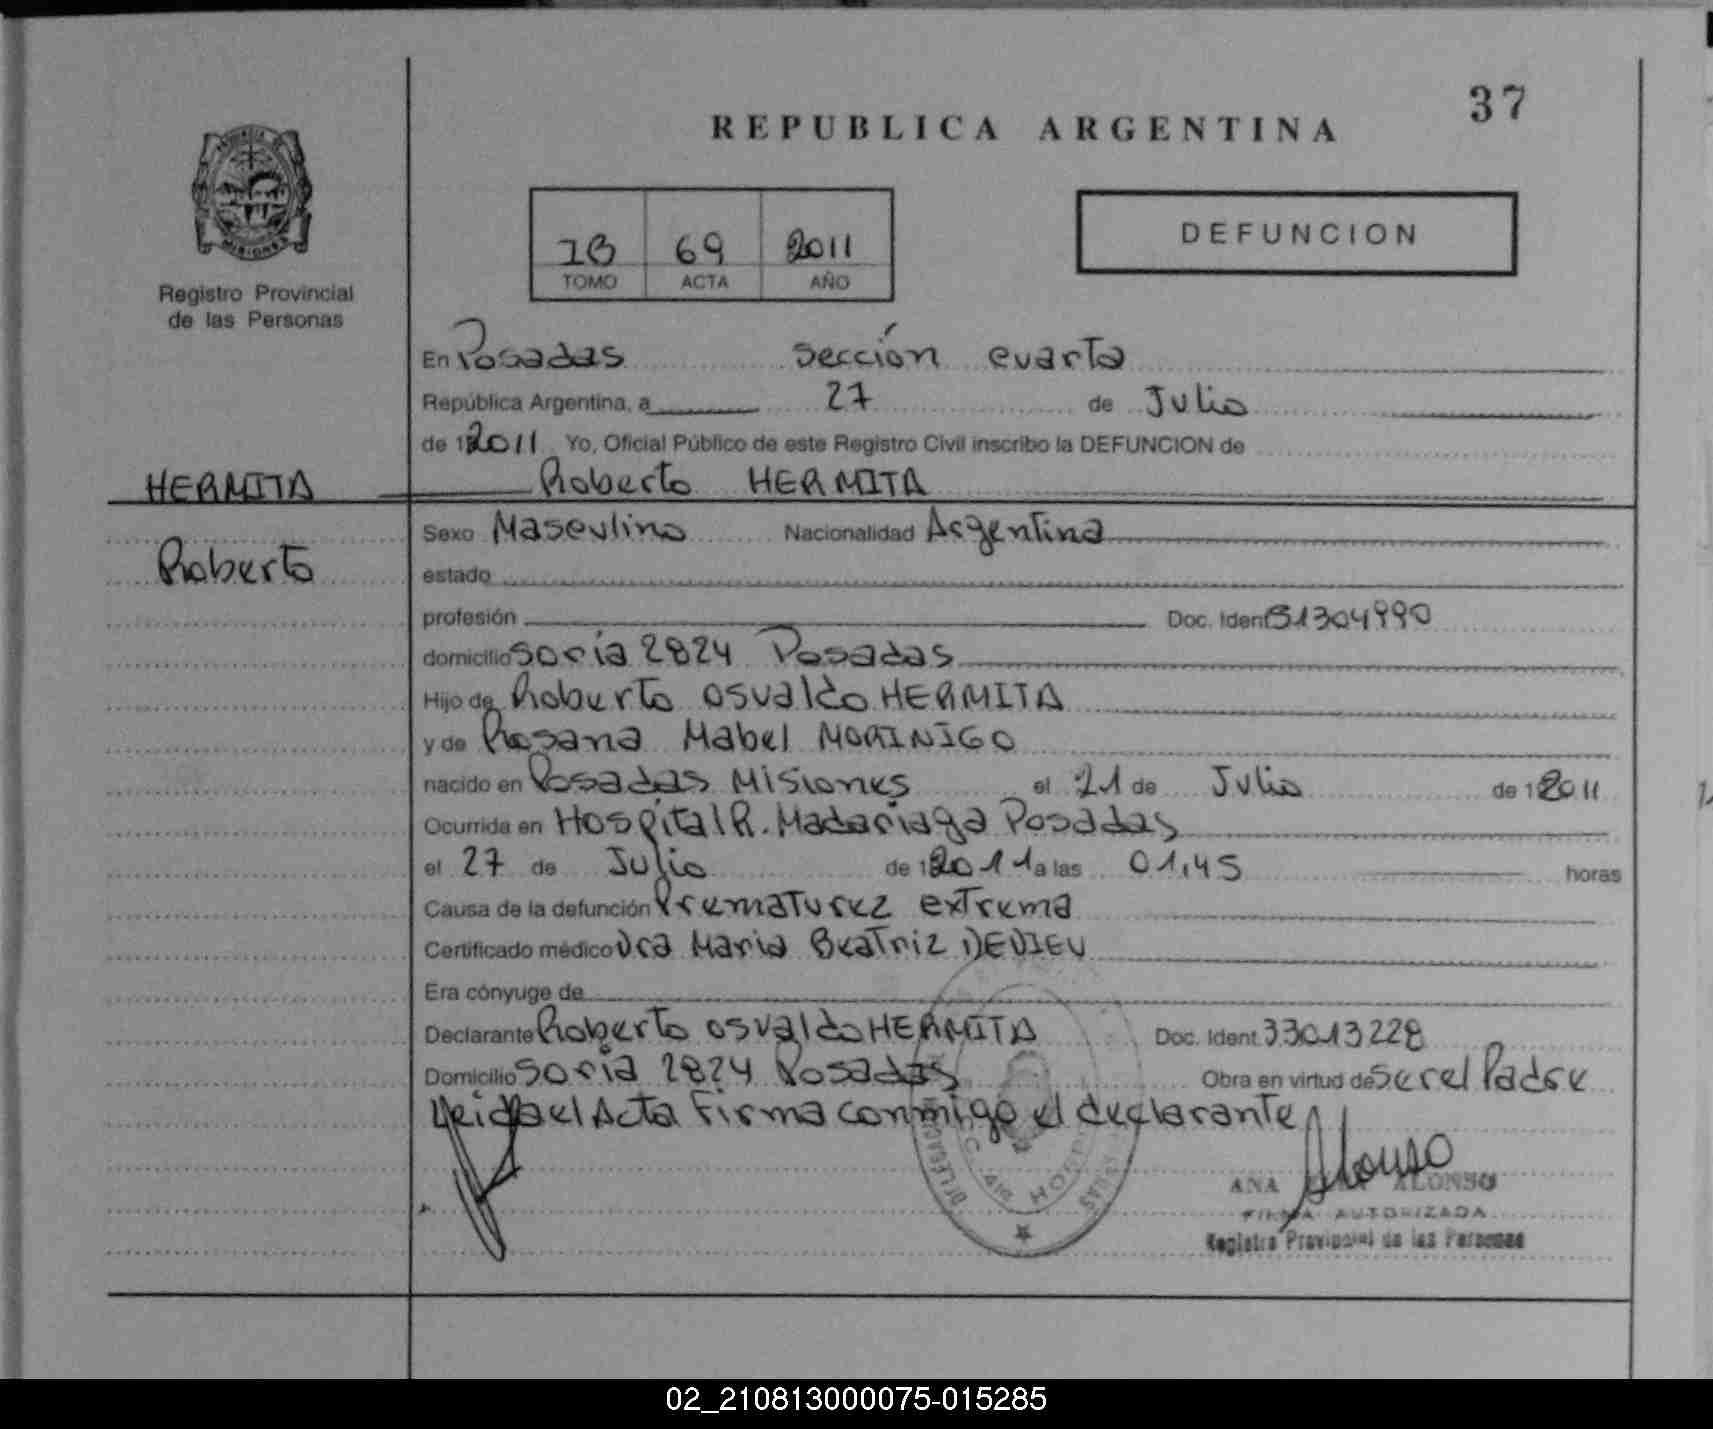 37
REPUBLICA ARGENTINA
DEFUNCION
1B 69 2011
TOMO ACTA AÑO
PROVINCIA
MISIONES
Registro Provincial
de las Personas
En Posadas Sección cuarta
República Argentina, a 27 de Julio
de 12011 Yo, Oficial Público de este Registro Civil inscribo la DEFUNCION de
HERMITA Roberto HERMITA
Roberto
Sexo Masculino Nacionalidad Argentina
estado
profesión Doc. Ident 51304990
domicilio Soria 2824 Posadas
Hijo de Roberto Osvaldo HERMITA
y de Rosana Mabel MORINIGO
nacido en Posadas Misiones el 21 de Julio de 12011
Ocurrida en Hospital R. Madariaga Posadas
el 27 de Julio de 12011 a las 01,45 horas
Causa de la defunción Prematurez extrema
Certificado médico Dra Maria Beatriz DEVIEU
Era cónyuge de
Declarante Roberto Osvaldo HERMITA Doc. Ident. 33013228
Domicilio Soria 2824 Posadas Obra en virtud de Ser el Padre
Leida el Acta Firma conmigo el declarante
Alonso
ANA ALONSO
FIRMA AUTORIZADA
Registro Provincial de las Personas
02_210813000075-015285